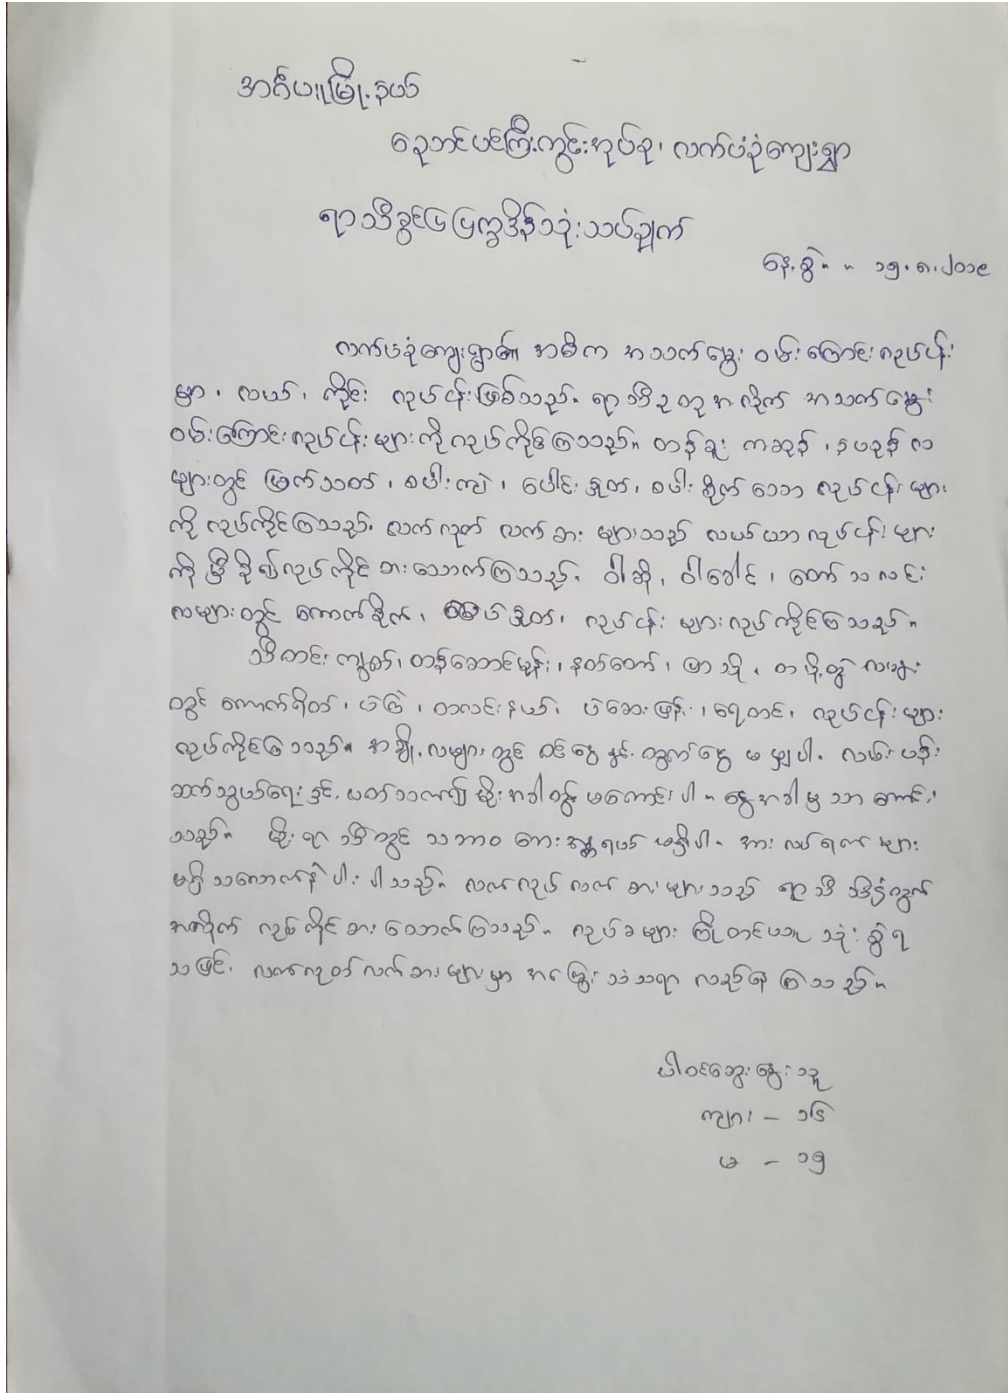 အင်္ဂပူမြို့နယ်
ညောင်ပင်ကြီးကွင်းအုပ်စု၊ လက်ပံခုံကျေးရွာ
ရာသီခွင်ပြပြက္ခဒိန်သုံးသပ်ချက်
နေ့စွဲ။ ။ ၁၅.၈.၂၀၁၉
လက်ပံခုံကျေးရွာ၏ အဓိက အသက်မွေး ဝမ်းကြောင်းလုပ်ငန်း
မှာ၊ လယ်၊ ကိုင်း လုပ်ငန်းဖြစ်သည်။ ရာသီဥတုအလိုက် အသက်မွေး
ဝမ်းကြောင်းလုပ်ငန်းများကိုလုပ်ကိုင်ကြသည်။ တန်ခူး ကဆုန်၊ နယုန်လ
များတွင် မြက်သတ်၊ စပါးကျဲ၊ ပေါင်းနှုတ်၊ စပါးစိုက်သော လုပ်ငန်းများ
ကို လုပ်ကိုင်ကြသည်။ လက်လုတ် လက်စား များသည် လယ်ယာလုပ်ငန်းများ
ကို မှီခိုလုပ်ကိုင်စားသောက်ကြသည်။ ဝါဆို၊ ဝါခေါင်၊ တော်သလင်း
လများတွင် ကောက်စိုက်၊ နှုတ်၊ လုပ်ငန်း များလုပ်ကိုင်ကြသည်။
သီတင်းကျွတ်၊ တန်ဆောင်မုန်း၊ နတ်တော်၊ ပြာသို၊ တပို့တွဲ လများ
တွင် ကောက်ရိတ်၊ ပဲကြဲ၊ တလင်းနယ်၊ ပဲဆေးဖြန်း၊ ရေတင်၊ လုပ်ငန်းများ
လုပ်ကိုင်ကြသည်။ အချို့လများတွင် ဝင်ငွေနှင့်ထွက်ငွေ မမျှပါ။ လမ်းပန်း
ဆက်သွယ်ရေးနှင့်ပတ်သက်၍ မိုးအခါတွင် မကောင်းပါ။ နွေအခါမှသာကောင်း
သည်။ မိုးရာသီတွင် သဘာဝ ဘေးအန္တရာယ် မရှိပါ။ အားလပ်ရက်များ
မရှိသလောက်နည်းပါးပါသည်။ လက်လုပ်လက်စားများသည် ရာသီ
အလိုက် လုပ်ကိုင်စားသောက်ကြသည်။ လုပ်ခများ ကြိုတင်ယူသုံးစွဲရ
သဖြင့် လက်လုတ်လက်စားများမှာ အကြွေးသံသရာ လည်နေကြသည်။
ပါဝင်ဆွေးနွေးသူ
ကျား - ၁၆
မ - ၁၅